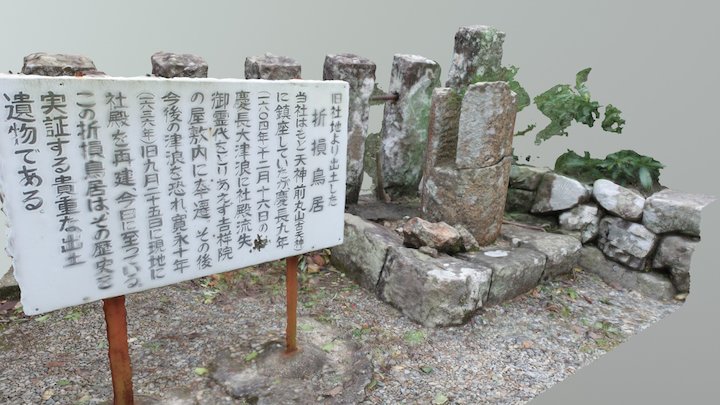 旧社地より出土した
折損鳥居
当社はもと天神前丸山(古天神)
に鎮座していたが慶長九年
(一六〇四年)十二月十六日の
慶長大津浪に社殿流失
御霊代をとりあえず吉祥院
の屋敷内にお遷し その後
今後の津浪を恐れ、寛永十年
(一六三三年)旧九月二十五日に現地に
社殿を再建、今日に至っている。
この折損鳥居は、その歴史を
実証する貴重な出土
遺物である。